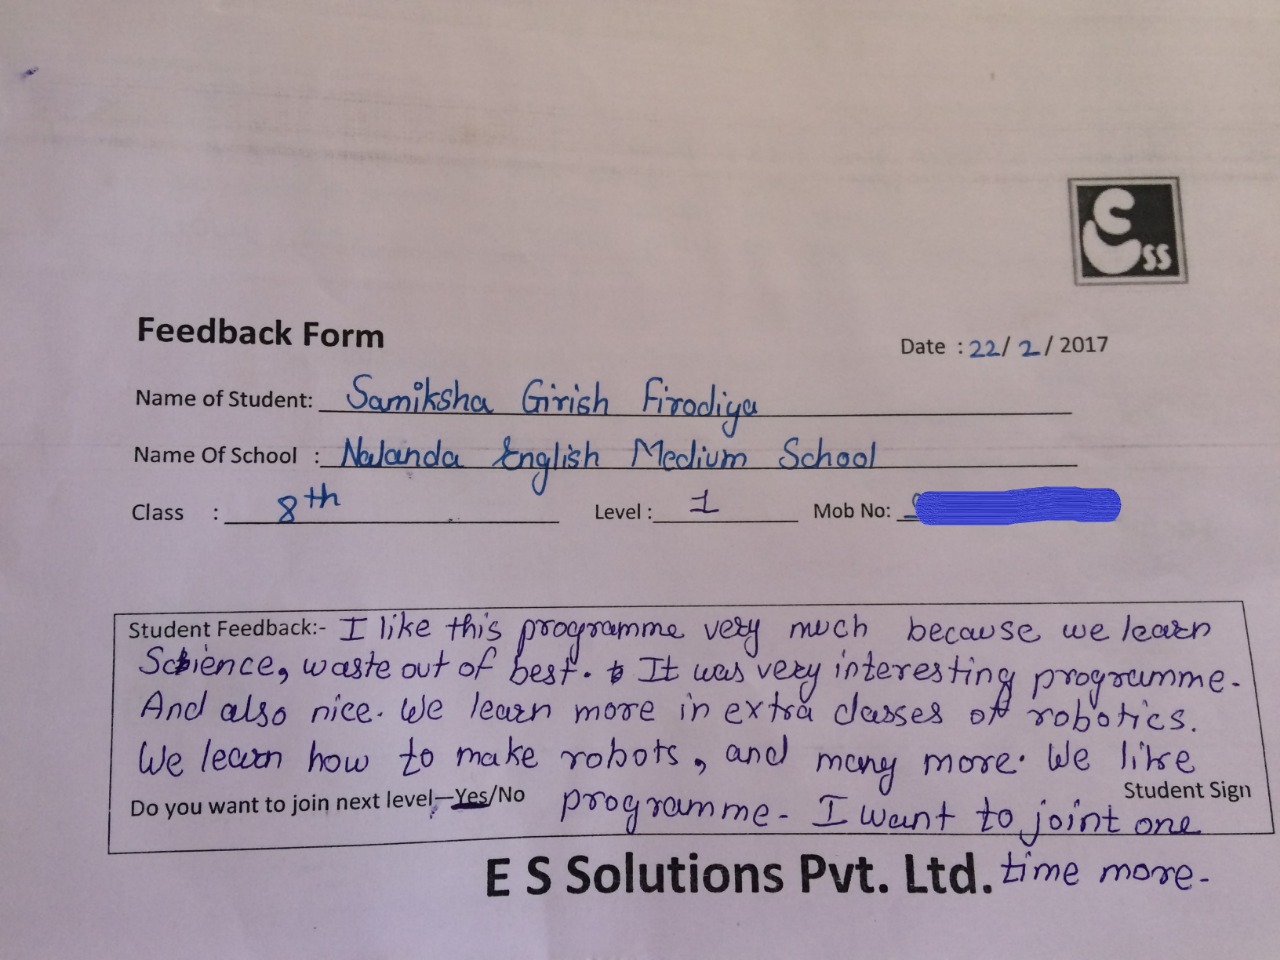 ESS
Feedback Form
Date : 22/2/2017
Name of Student: Samiksha Girish Firodiya
Name Of School : Nalanda English Medium School
Class : 8th Level : 1 Mob No:
Student Feedback:- I like this programme very much because we learn
Science, waste out of best. It was very interesting programme.
And also nice. We learn more in extra classes of robotics.
We learn how to make robots, and many more. We like
Do you want to join next level—Yes/No
Student Sign
programme. I want to joint one
E S Solutions Pvt. Ltd.
time more.